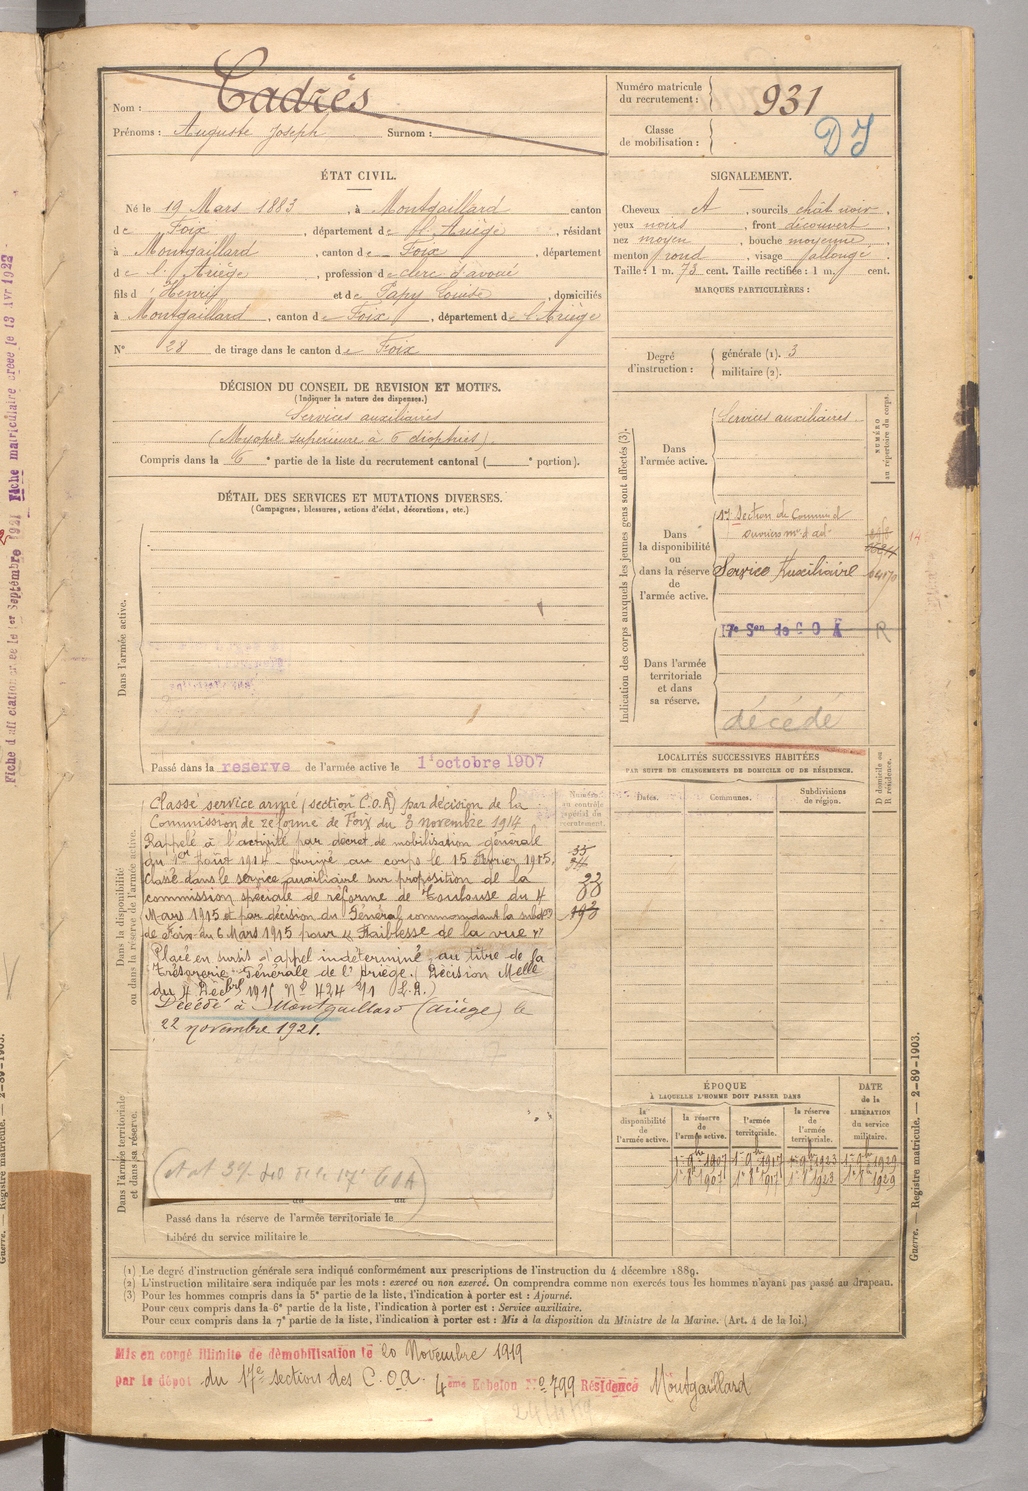 Nom : Cadrès
Prénoms : Auguste Joseph Surnom :
Numéro matricule du recrutement : 931
Classe de mobilisation :
DJ
ÉTAT CIVIL.
Né le 19 Mars 1883, à Montgaillard canton
de Foix, département de l'Ariège, résidant
à Montgaillard, canton de Foix, département
de l'Ariège, profession de clerc d'avoué
fils d'Henry et de Papy Louise, domiciliés
à Montgaillard, canton de Foix, département de l'Ariège
N° 28 de tirage dans le canton de Foix
SIGNALEMENT.
Cheveux et, sourcils chât noir,
yeux noirs, front découvert,
nez moyen, bouche moyenne,
menton rond, visage allongé.
Taille : 1 m. 73 cent. Taille rectifiée : 1 m. cent.
MARQUES PARTICULIÈRES :
Degré d'instruction : générale (1). 3
militaire (2).
DÉCISION DU CONSEIL DE REVISION ET MOTIFS.
(Indiquer la nature des dispenses.)
Services auxiliaires
(Myopie supérieure à 6 dioptries).
Compris dans la 6e partie de la liste du recrutement cantonal ( e portion).
DÉTAIL DES SERVICES ET MUTATIONS DIVERSES.
(Campagnes, blessures, actions d'éclat, décorations, etc.)
Dans l'armée active.
Passé dans la reserve de l'armée active le 1 octobre 1907
Indication des corps auxquels les jeunes gens sont affectés (3).
NUMÉRO au répertoire du corps.
Dans l'armée active.
Services auxiliaires
Dans la disponibilité ou dans la réserve de l'armée active.
17e Section de Commis et
ouvriers mres d'adon
Service Auxiliaire
Dans l'armée territoriale et dans sa réserve.
17e Son de C O A
R
décédé
Dans la disponibilité ou dans la réserve de l'armée active.
Numéro au contrôle spécial du recrutement.
Classé service armé (section C.O.A) par décision de la
Commission de réforme de Foix du 3 novembre 1914
Rappelé à l'activité par décret de mobilisation générale
du 1er Août 1914 - Arrivé au corps le 15 Février 1915,
Classé dans le service auxiliaire sur proposition de la
commission spéciale de réforme de Toulouse du 4
Mars 1915 et par décision du Général commandant la subdon
de Foix du 6 Mars 1915 pour « Faiblesse de la vue »
Placé en sursis d'appel indéterminé, au titre de la
Trésorerie Générale de l'Ariège. (Décision Melle
Décédé à Montgaillard (Ariège) le
22 novembre 1921.
LOCALITÉS SUCCESSIVES HABITÉES
PAR SUITE DE CHANGEMENTS DE DOMICILE OU DE RÉSIDENCE.
Dates.
Communes.
Subdivisions de région.
D domicile ou R résidence.
ÉPOQUE
À LAQUELLE L'HOMME DOIT PASSER DANS
la disponibilité de l'armée active.
la réserve de l'armée active.
l'armée territoriale.
la réserve de l'armée territoriale.
DATE de la LIBÉRATION du service militaire.
1er 8bre 1907 1er 8bre 1917 1er 8bre 1923 1er 8bre 1929
Dans l'armée territoriale et dans sa réserve.
Passé dans la réserve de l'armée territoriale le
Libéré du service militaire le
(1) Le degré d'instruction générale sera indiqué conformément aux prescriptions de l'instruction du 4 décembre 1889.
(2) L'instruction militaire sera indiquée par les mots : exercé ou non exercé. On comprendra comme non exercés tous les hommes n'ayant pas passé au drapeau.
(3) Pour les hommes compris dans la 5e partie de la liste, l'indication à porter est : Ajourné.
Pour ceux compris dans la 6e partie de la liste, l'indication à porter est : Service auxiliaire.
Pour ceux compris dans la 7e partie de la liste, l'indication à porter est : Mis à la disposition du Ministre de la Marine. (Art. 4 de la loi.)
Mis en congé illimité de démobilisation le 20 Novembre 1919
par le dépot du 17e section des C.O.A. 4ème Echelon No 799 Résidence Montgaillard
Guerre. — Registre matricule. — 2-89-1903.